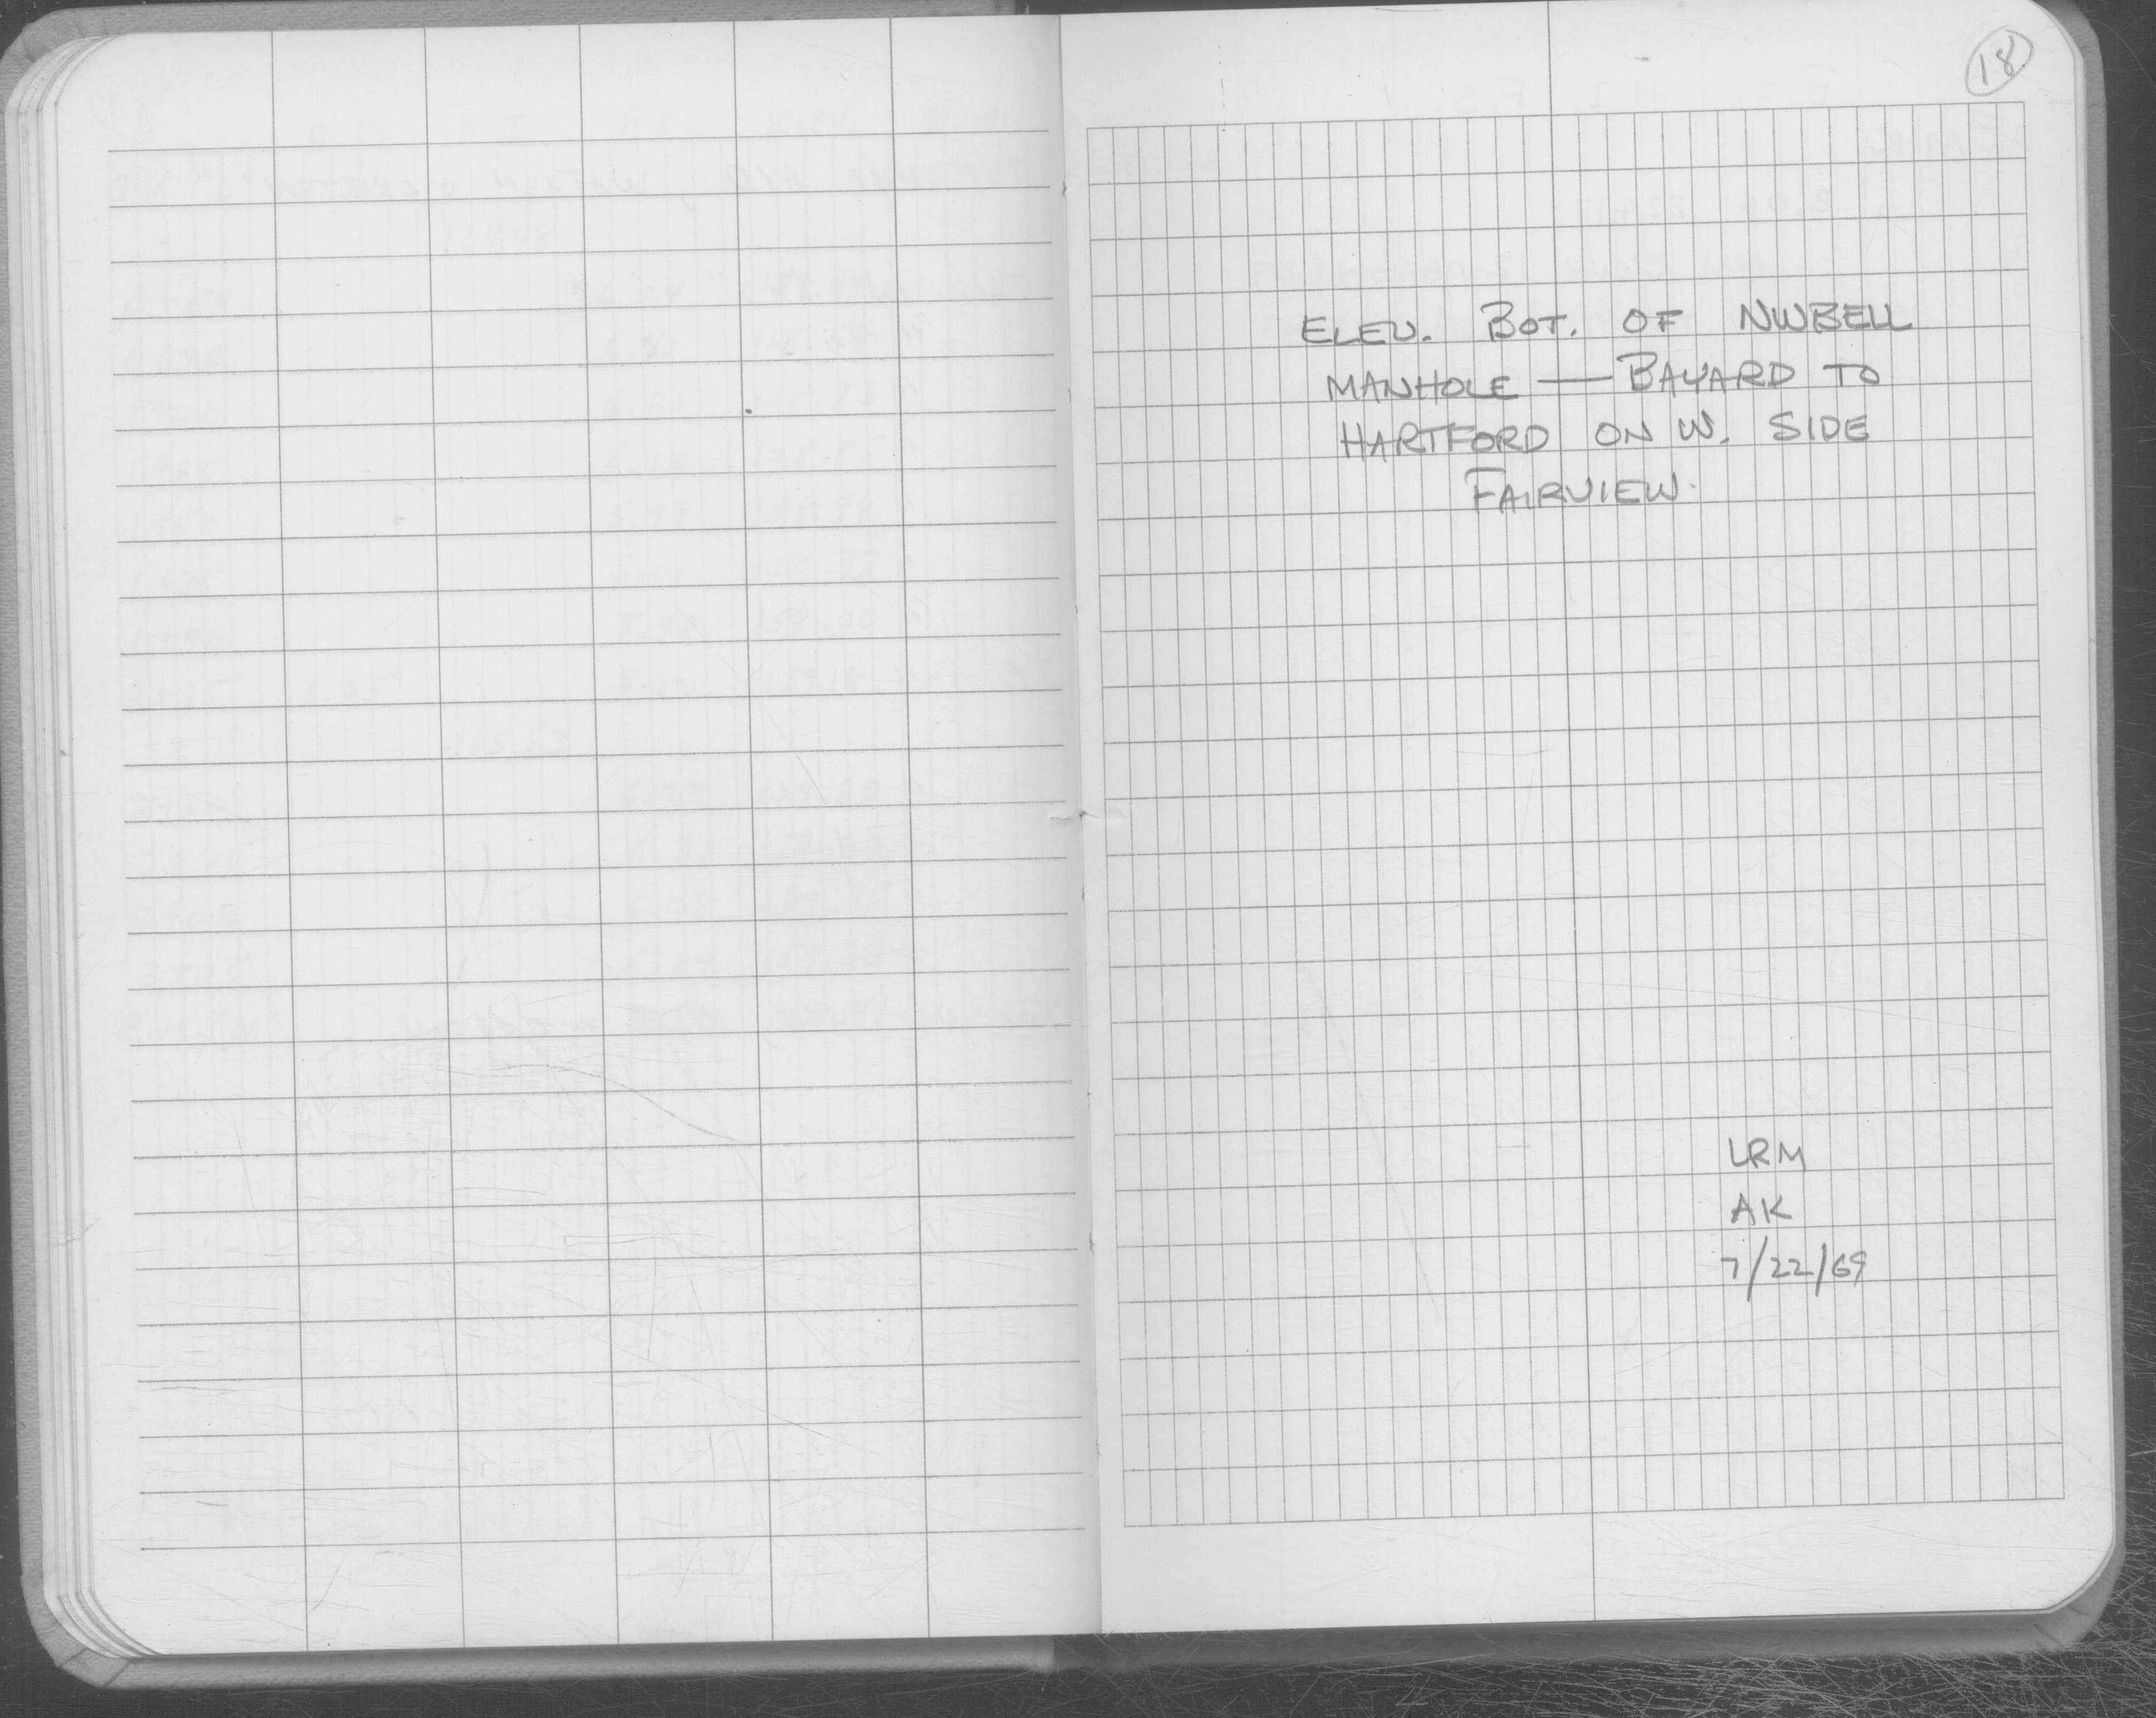 18
ELEV. BOT. OF NWBELL
MANHOLE — BAYARD TO
HARTFORD ON W. SIDE
FAIRVIEW.
LRM
AK
7/22/69